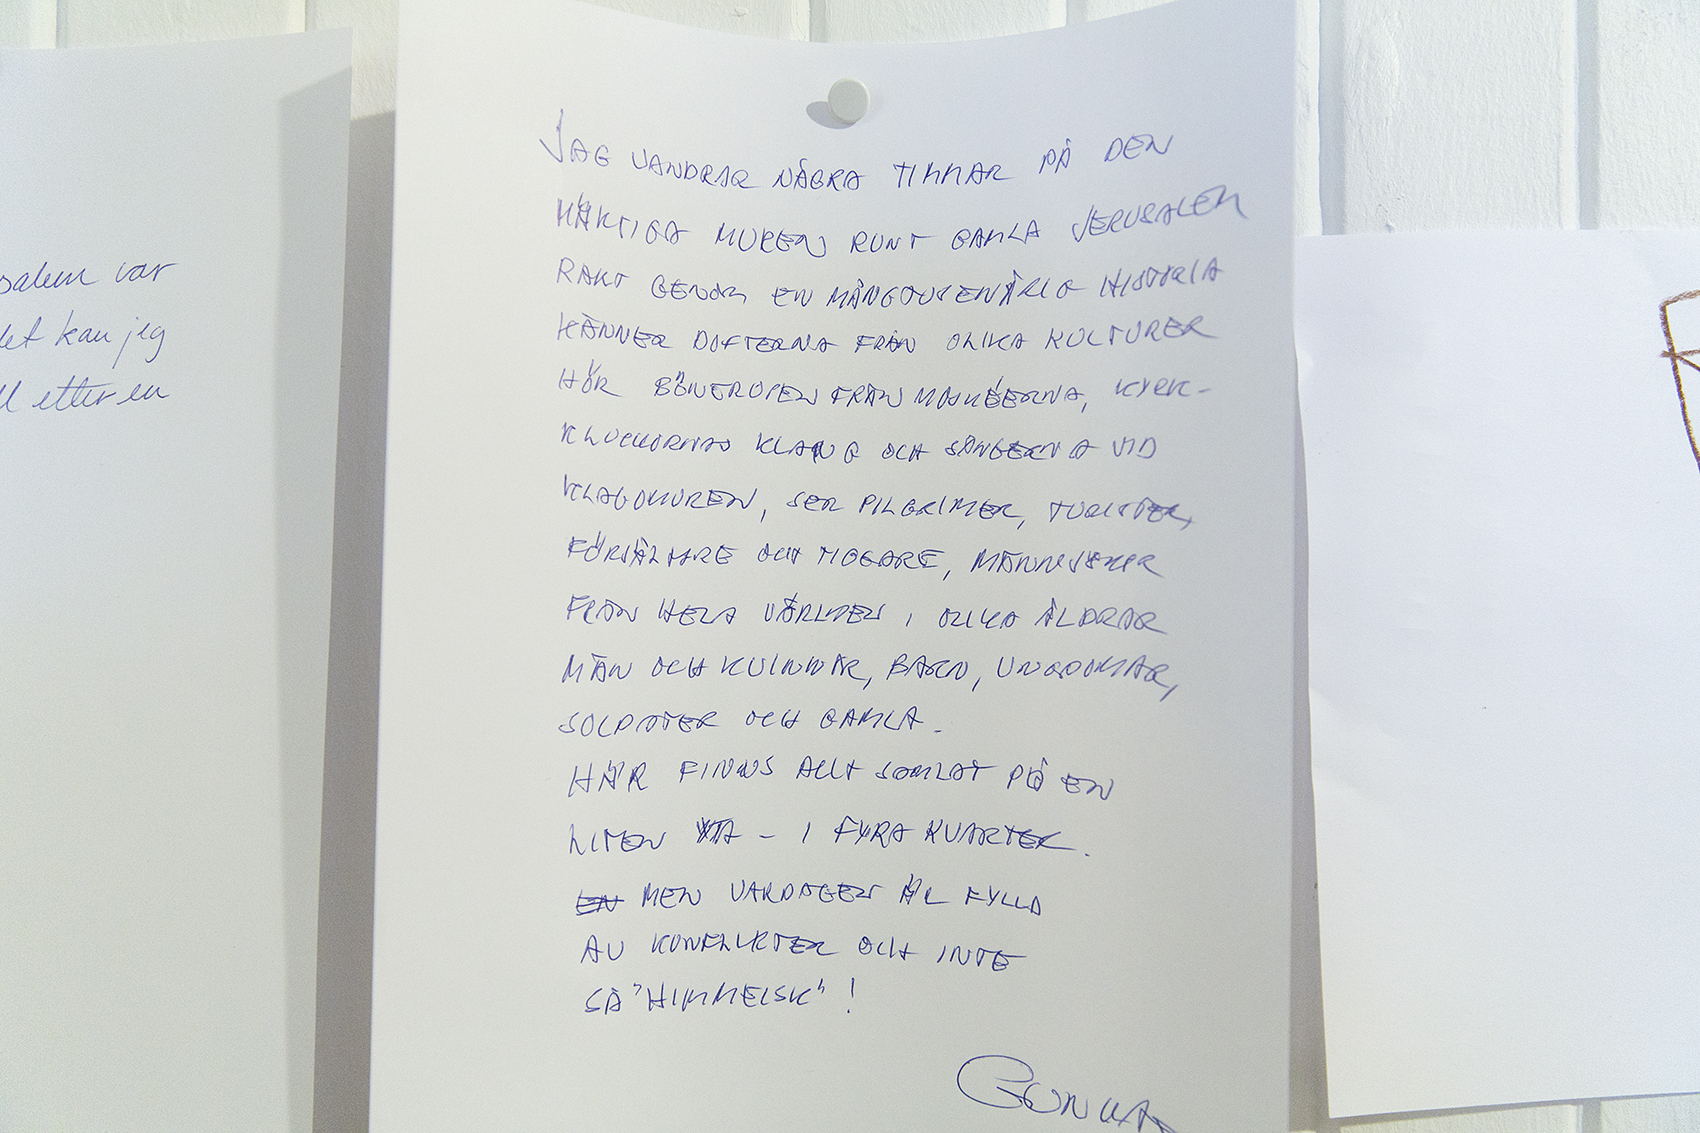 salem var
det kan jeg
etter en
JAG VANDRAR NÅGRA TIMMAR PÅ DEN
MÄKTIGA MUREN RUNT GAMLA JERUSALEM
RAKT GENOM EN MÅNGTUSENÅRIG HISTORIA
KÄNNER DOFTERNA FRÅN OLIKA KULTURER
HÖR BÖNEROPEN FRÅN MOSKÉERNA, KYRK-
KLOCKORNAS KLANG OCH SÅNGERNA VID
KLAGOMUREN, SER PILGRIMER, TURISTER,
FÖRSÄLJARE OCH TIGGARE, MÄNNISKOR
FRÅN HELA VÄRLDEN I OLIKA ÅLDRAR
MÄN OCH KVINNOR, BARN, UNGDOMAR,
SOLDATER OCH GAMLA.
HÄR FINNS ALLT SAMLAT PÅ EN
LITEN YTA - I FYRA KVARTER.
EN MEN VARDAGEN ÄR FYLLD
AV KONFLIKTER OCH INTE
SÅ "HIMMELSK"!